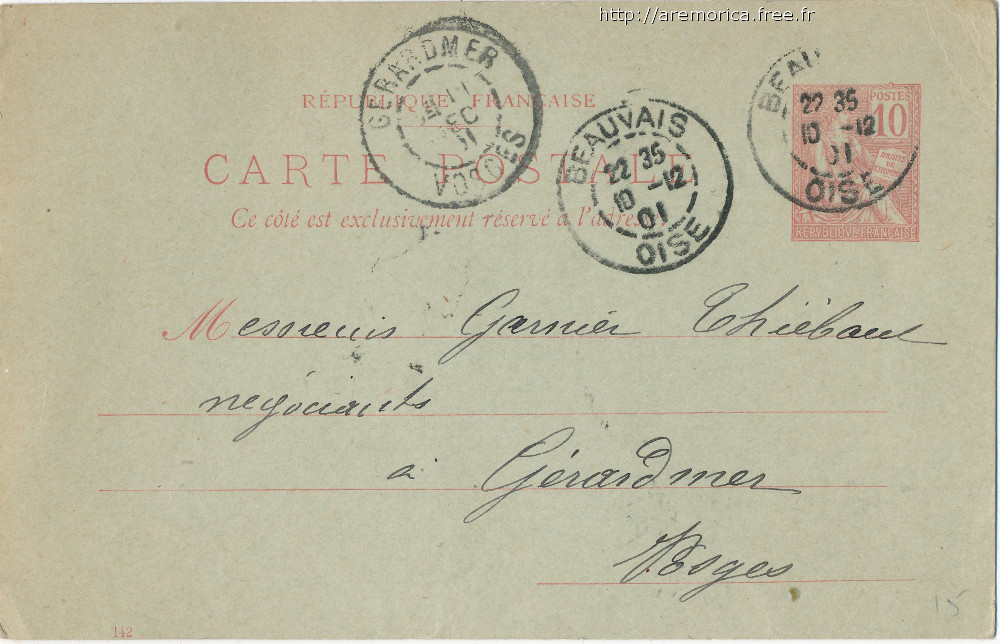 http://aremorica.free.fr
GERARDMER
VOSGES
BEAUVAIS
22 35
10 -12
01
OISE
BEAU
22 35
10 -12
01
OISE
POSTES
10
DROITS DE L'HOMME
REPVBLIQVE FRANÇAISE
RÉPUBLIQUE FRANÇAISE
CARTE POSTALE
Ce côté est exclusivement réservé à l'adresse
Messieurs Garnier Thiébaut
négociants
à Gérardmer
Vosges
142
15